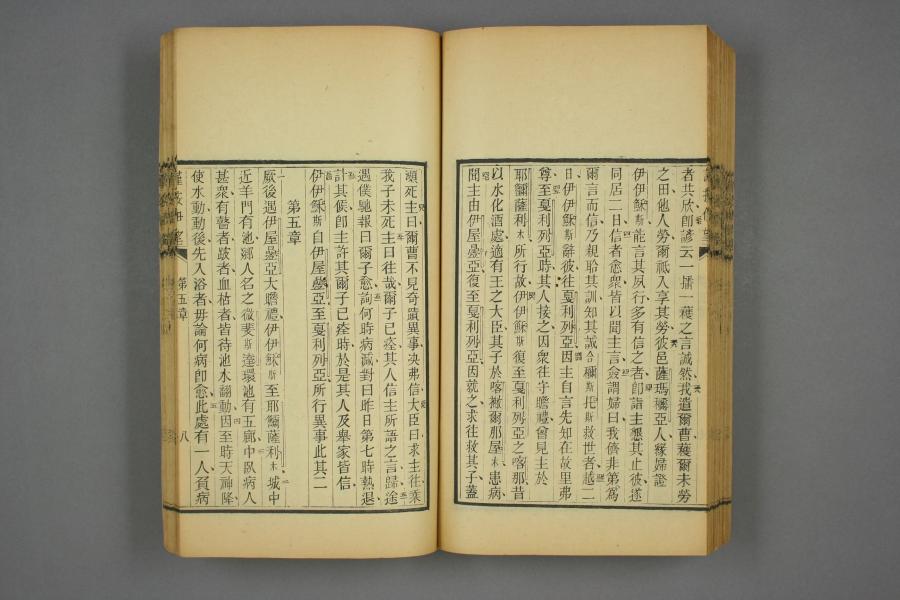 者共欣卽諺云一播一穫之言誠然我遣爾曹穫爾未勞
之田他人勞爾祗入享其勞彼邑薩瑪𤫊亞人緣婦證
伊伊穌斯能言其夙行多有信之者卽詣主懇其止彼遂
同居二日信者愈衆皆以聞主言僉謂婦曰我儕非第爲
爾言而信乃親聆其訓知其誠合𣁋斯托斯救世者越二
日伊伊穌斯辭彼往戞利列亞因主自言先知在故里弗
尊至戞利列亞時其人接之因衆往守瞻禮曾見主於
耶𤫊薩利木所行故伊伊穌斯復至戞利列亞之喀那昔
以水化酒處適有王之大臣其子於喀𣁋爾那屋木患病
聞主由伊屋疊亞復至戞利列亞因就之求往救其子蓋
瀕死主曰爾曹不見奇蹟異事决弗信大臣曰求主往乘
我子未死主曰往哉爾子已痊其人信主所語之言歸途
遇僕馳報曰爾子愈詢何時病減對曰昨日第七時熱退
計其候卽主許其爾子已痊時於是其人及舉家皆信
伊伊穌斯自伊屋疊亞至戞利列亞所行異事此其二
第五章
厥後遇伊屋疊亞大瞻禮伊伊穌斯至耶𤫊薩利木城中
近羊門有池鄉人名之微斐斯達環池有五廊中臥病人
甚衆有瞽者跛者血枯者皆待池水翻動因至時天神降
使水動動後先入浴者毋論何病卽愈此處有一人負病
第五章
八